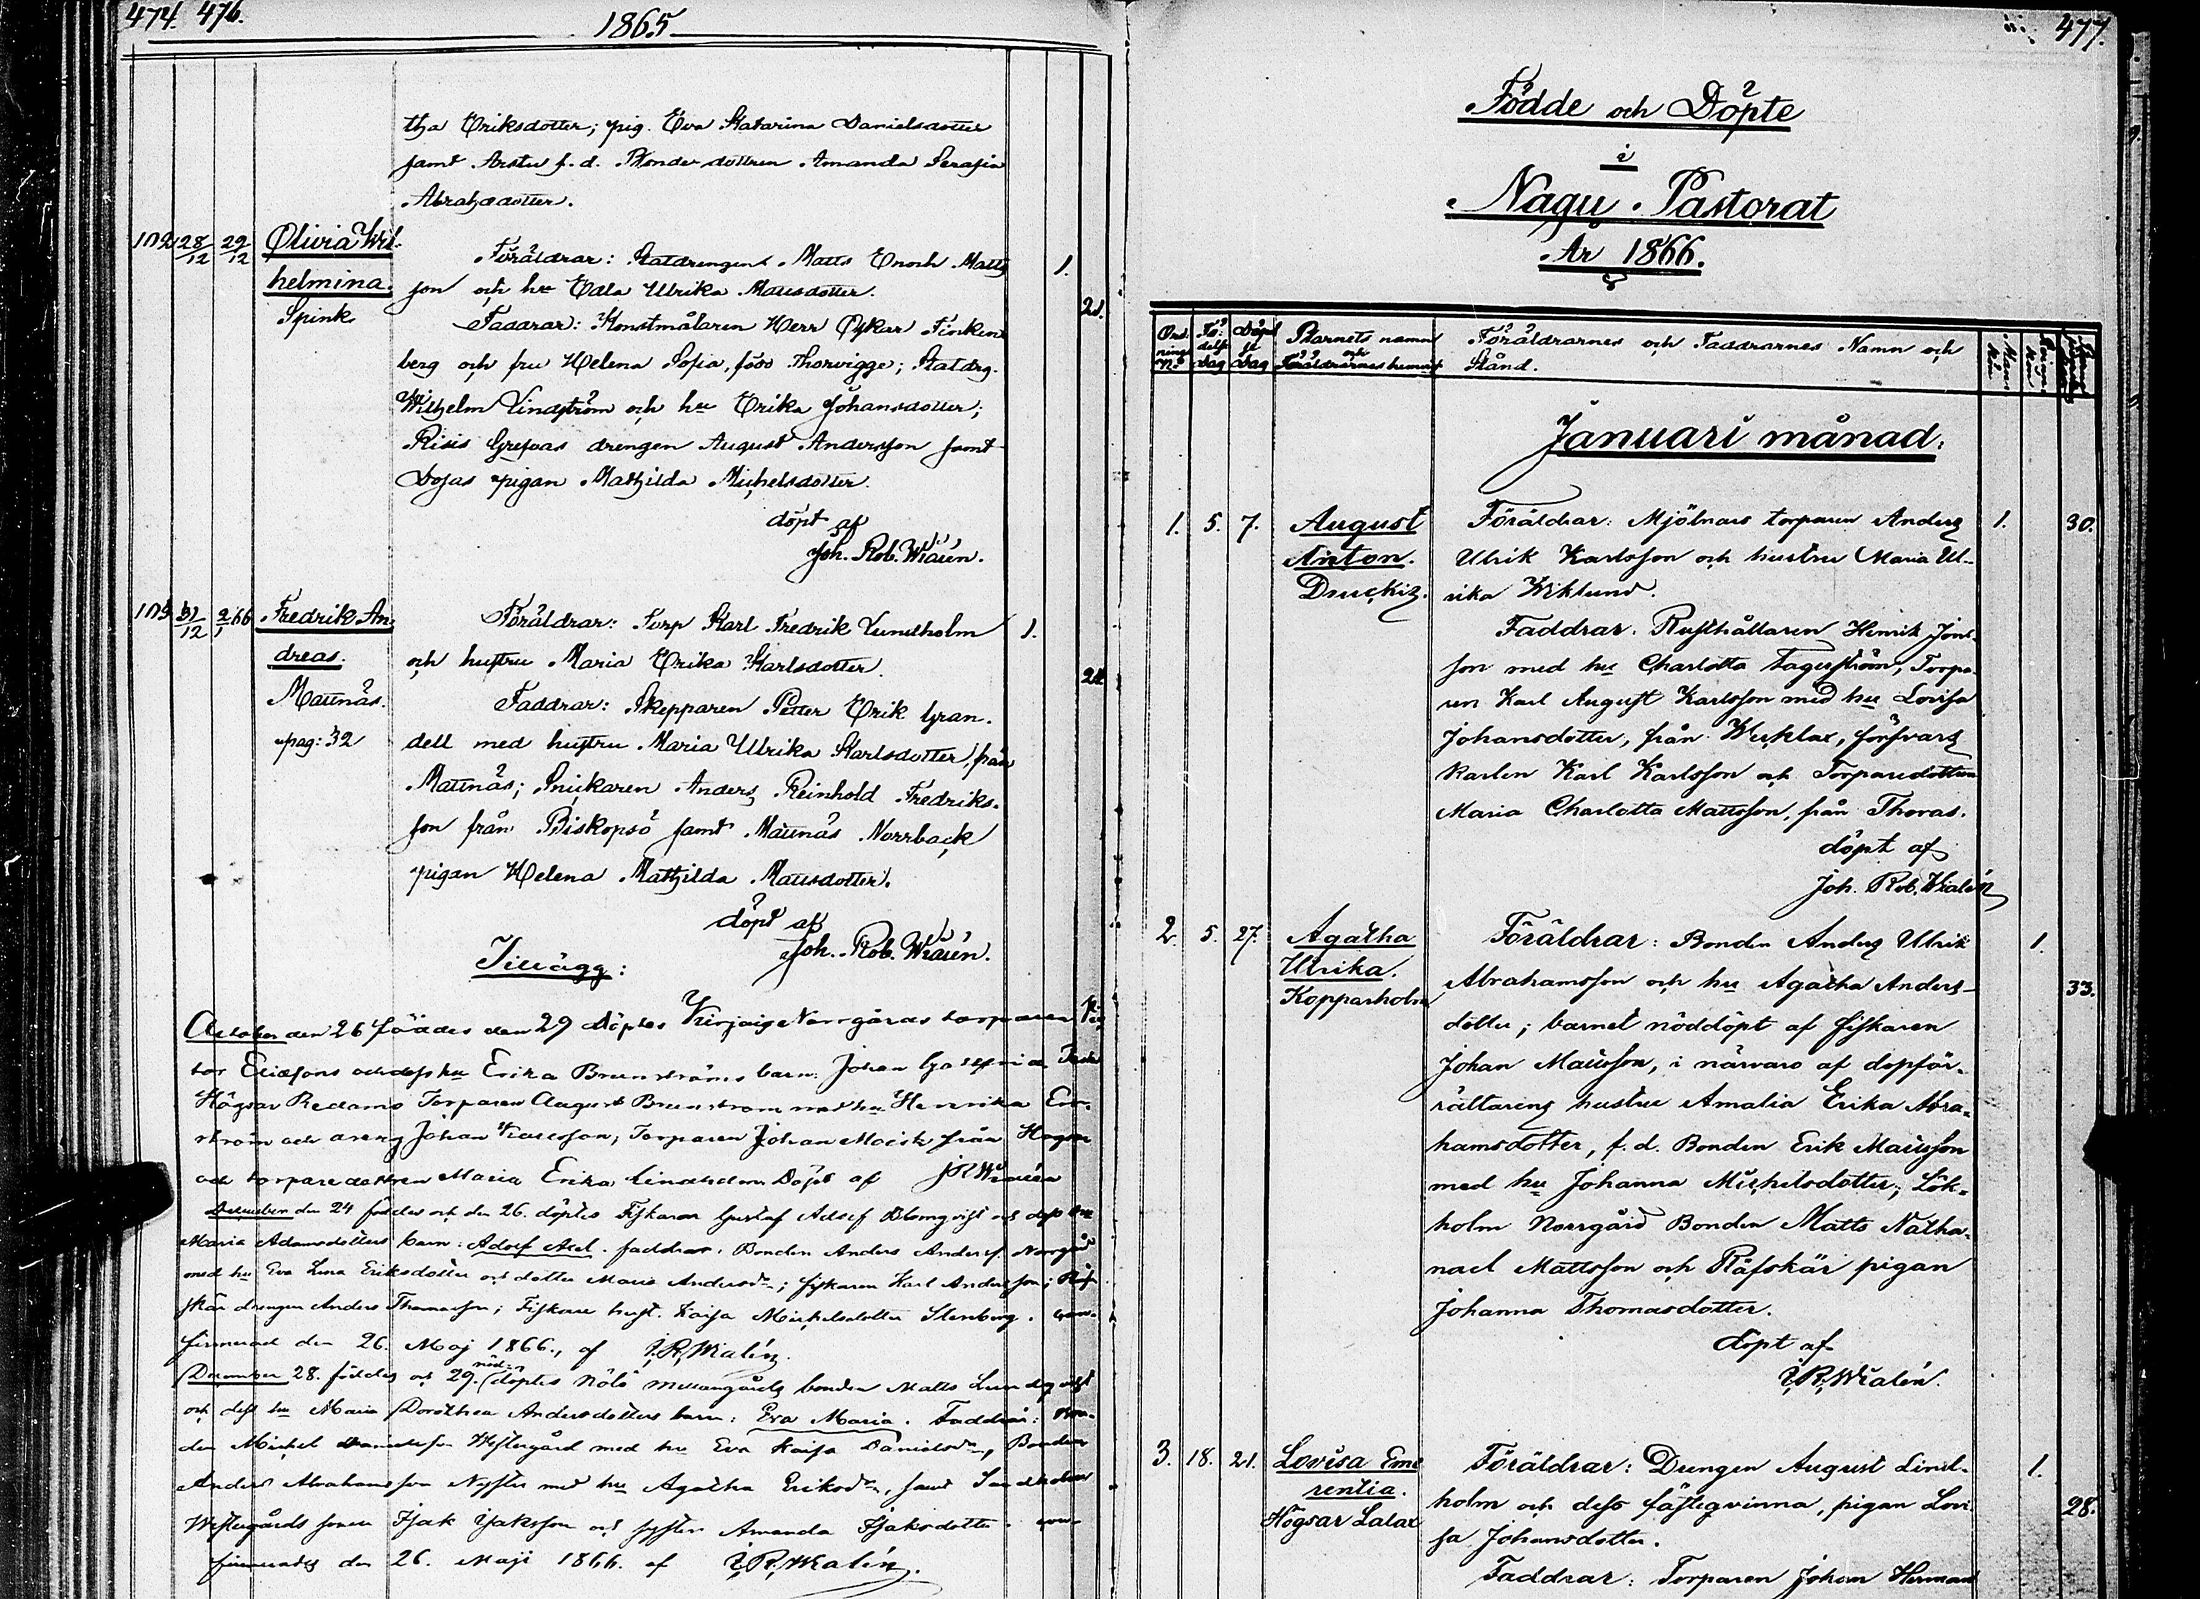 474. 476.
1865
tha Eriksdotter; pig. Eva Katarina Danielsdotter
samt f. d. Bonde dottren Amanda Serafia
Abrahsdotter.
28/12 29/12 Olivia Wil-
helmina.
Spink
Föräldrar: Statdrengen Matts Enoch Matts
son och hu Edla Ulrika Mattsdotter.
1.
21.
Faddrar: Konstmålaren Herr Oskar Finken
berg och fru Helena Sofia, född Thorvigge; Statdrg.
Wilhelm Lindström och hu Erika Johansdotter;
Risis Grefvas drengen August Andersson samt
pigan Mathilda Michelsdotter.
döpt af
Joh. Rob. Wialén.
31/12 2/1 66 Fredrik An-
dreas.
Mattnäs.
pag: 32
Föräldrar: Torp Karl Fredrik Lundholm
och hustru Maria Erika Karlsdotter.
1.
Faddrar: Skepparen Petter Erik Gran-
dell med hustru Maria Ulrika Karlsdotter, från
Mattnäs; Snickaren Anders Reinhold Fredriks-
son från Biskopsö samt Mattnäs Norrback
pigan Helena Mathilda Mattsdotter.
döpt af
Joh. Rob. Wialén.
Tillägg:
October den 26 föddes den 29 Döptes Norrgårds torparen
Erikssons och dess hu Erika Brunströms barn: Johan
Högsar Torparen August Brunström med hu Henrika
ström och dreng Johan Karlsson; Torparen Johan från Högsar
och torparedottren Maria Erika Lindholm Döpt af JR Wialén
December den 24 föddes och den 26. döptes Fiskaren Gustaf Adolf Blomqvist och dess hu
Maria Adamsdotters barn: Adolf Axel. faddrar: Bonden Anders Anderss. Norrgård
med hu Eva Lena Eriksdotter och dotter Maria Andersdr; fiskaren Karl Andersson; Räf-
skär drengen Anders Thomasson; Fiskare hust. Kaisa Michelsdotter Stenberg. con-
firmerad den 26. Maj 1866., af J. R. Wialén.
December 28. föddes och 29. nöd-döptes Nölö Mellangårds bonden Matts Lundqvist
och dess hu Maria Dorothea Andersdotters barn: Eva Maria. Faddrar: Bon-
den Michel Danielsson Westergård med hu Eva Kaisa Danielsdr, Bonden
Anders Abrahamsson med hu Agatha Eriksdr, samt Sandholm
Westergårds sonen Isak Isaksson och syster Amanda Isaksdotter. con-
firmerades den 26. Maji 1866 af J. R. Wialén.
477.
Födde och Döpte
i
Nagu Pastorat
År 1866.
Ord-
nings
No
Fö-
delse
dag
Döpel
se
dag
Barnets namn
och
Föräldrarnes hemvist
Föräldrarnes och Faddrarnes Namn och
Stånd.
Januari månad.
1. 5. 7. August
Anton.
Druckis.
Föräldrar: Mjölnars torparen Anders
Ulrik Karlsson och hustru Maria Ul-
rika Wiklund.
1. 30.
Faddrar: Rusthållaren Henrik Jons-
son med hu Charlotta Fagerström, Torpa-
ren Karl August Karlsson med hu Lovisa
Johansdotter, från Wikslax, försvars
karlen Karl Karlsson och Torparedottren
Maria Charlotta Mattsson, från Thoras.
döpt af
Joh. Rob. Wialén
2. 5. 27. Agatha
Ulrika.
Kopparholm
Föräldrar: Bonden Anders Ulrik
Abrahamsson och hu Agatha Anders-
dotter; barnet nöddöpt af fiskaren
Johan Mattsson, i närvaro af dopför-
rättarens hustru Amalia Erika Abra-
hamsdotter, f. d. Bonden Erik Mattsson
med hu Johanna Michelsdotter; Lök-
holm Norrgård Bonden Matts Natha-
nael Mattsson och Räfskär pigan
Johanna Thomasdotter.
1.
33.
döpt af
J. R. Wialén.
3. 18. 21. Lovisa Eme
rentia.
Högsar Lalax
Föräldrar: Drengen August Lind-
holm och dess fästeqvinna, pigan Lovi-
sa Johansdotter.
1.
28.
Faddrar: Torparen Johan Herman